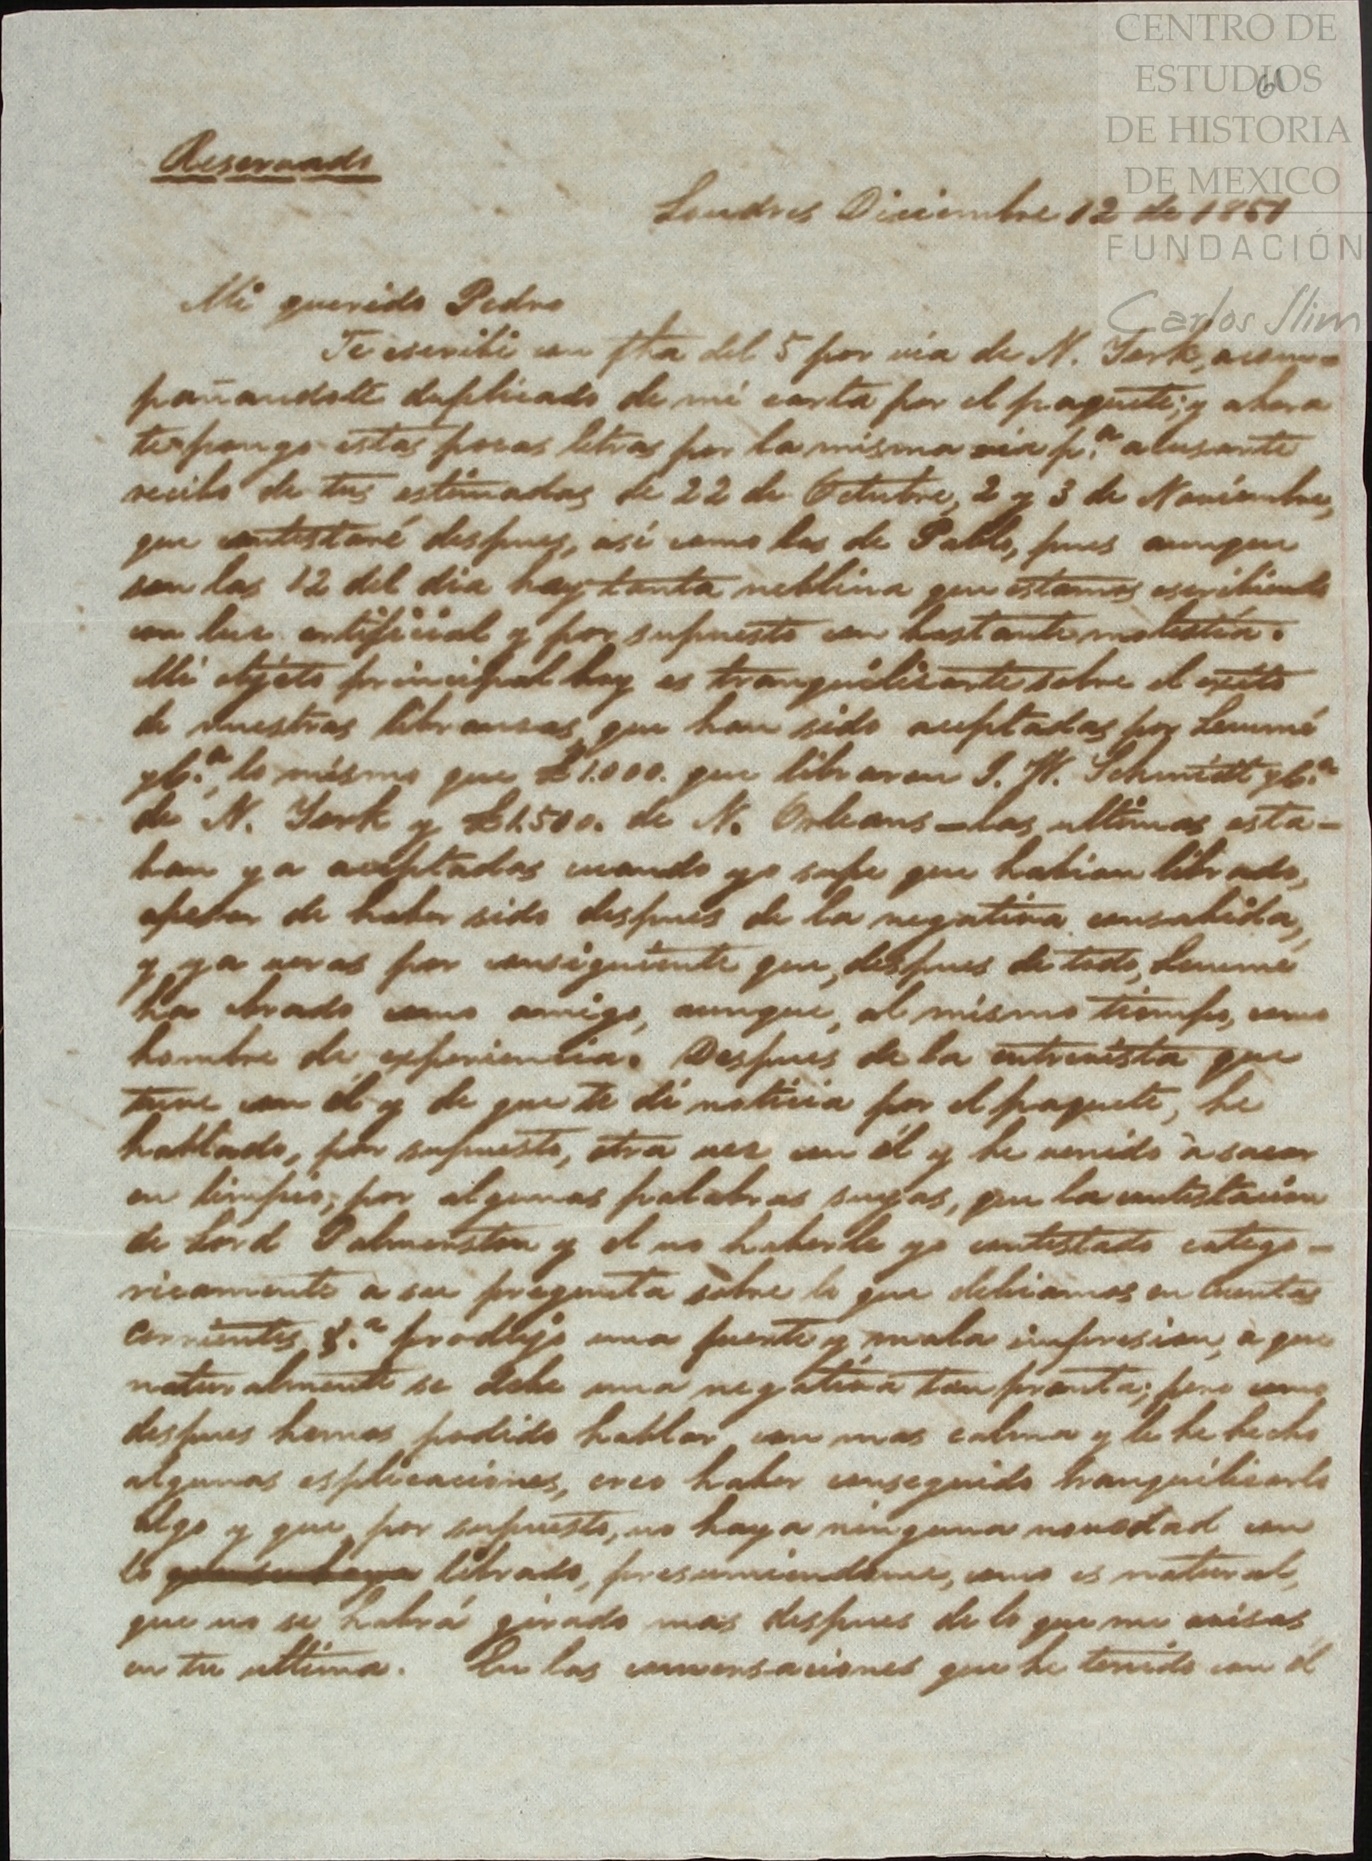 CENTRO DE
ESTUDIOS
DE HISTORIA
DE MEXICO
FUNDACIÓN
Carlos Slim
Reservado
Londres Diciembre 12 de 1851
Mi querido Pedro
Te escribi con fha del 5 por via de N. York, acom-
pañandote duplicado de mi carta por el paquete; y ahora
te pongo estas pocas letras por la misma via p.ª acusarte
recibo de tus estimadas de 22 de Octubre, 2 y 3 de Noviembre,
que contestaré despues, asi como las de Pablo, pues aunque
son las 12 del dia hay tanta neblina que estamos escribiendo
con luz artificial y por supuesto con bastante molestia.
Mi objeto principal hoy es tranquilizarte sobre el exito
de nuestras libranzas, que han sido aceptadas por Lemmé
y C.ª, lo mismo que £1.000. que libraron J. W. Schmidt y C.ª
de N. York y £1.500. de N. Orleans – las ultimas esta-
ban ya aceptadas cuando yo supe que habian librado,
apesar de haber sido despues de la negativa consabida,
y ya veras por consiguiente que, despues de todo, Lemmé
ha obrado como amigo, aunque, al mismo tiempo, como
hombre de experiencia. Despues de la entrevista que
tuve con él y de que te di noticia por el paquete, he
hablado, por supuesto, otra vez con él y he venido à sacar
en limpio, por algunas palabras suyas, que la contestacion
de Lord Palmerston y el no haberle yo contestado catego-
ricamente a su pregunta sobre lo que debiamos en cuentas
corrientes &.ª produjo una fuerte y mala impresion, a que
naturalmente se debe una negativa tan pronta; pero como
despues hemos podido hablar con mas calma y le he hecho
algunas esplicaciones, creo haber conseguido tranquilizarlo
algo y que por supuesto, no haya ninguna novedad con
lo librado, presumiendome, como es natural,
que no se habrá girado mas despues de lo que me avisas
en tu ultima. En las conversaciones que he tenido con él